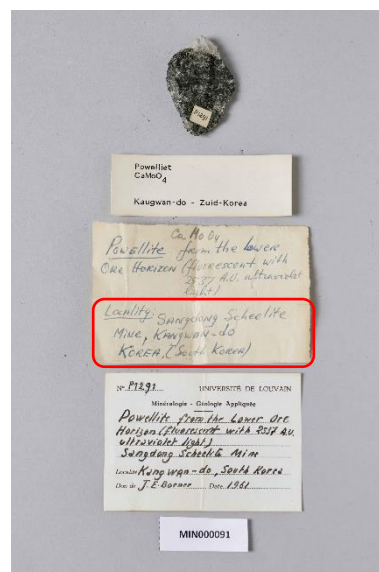 P1291
Powelliet
CaMoO4
Kaugwan-do - Zuid-Korea
Ca Mo O4
Powellite from the lower
Ore Horizon (fluorescent with
2537 A.U. ultraviolet
light)
Locality: Sangdong Scheelite
Mine, Kangwan-do
Korea, (South Korea)
N° P1291 UNIVERSITÉ DE LOUVAIN
Minéralogie - Géologie Appliquée
Powellite from the Lower Ore
Horizon (fluorescent with 2537 A.U.
ultraviolet light)
Sangdong Scheelite Mine
Localité Kangwan-do, South Korea
Don de J.E. Date 1961
MIN000091